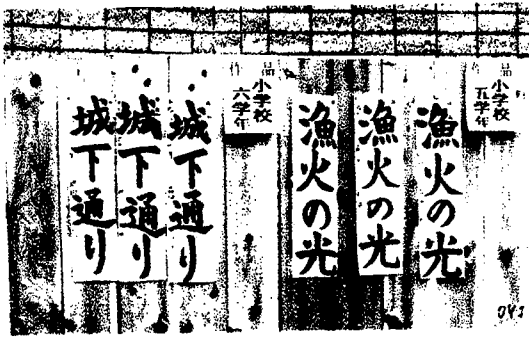 作品
小学校
五学年
漁火の光
漁火の光
漁火の光
作品
小学校
六学年
城下通り
城下通り
城下通り